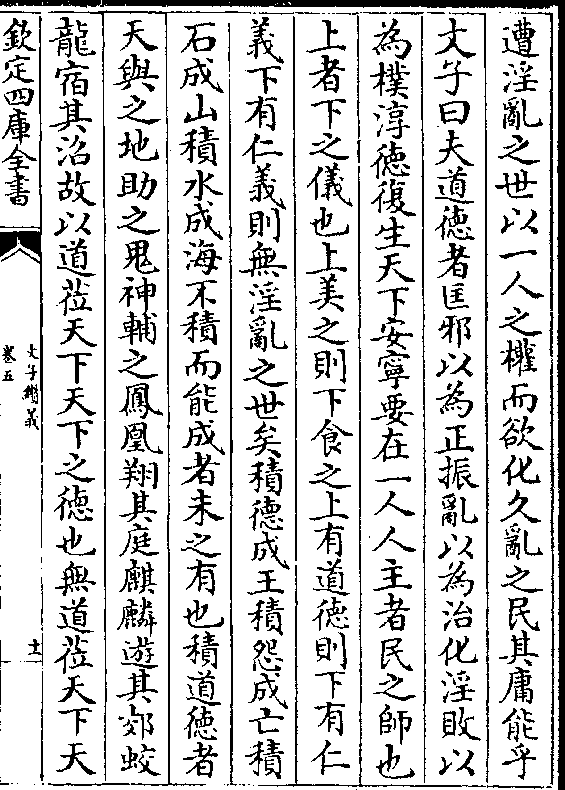 遭淫亂之世以一人之權而欲化久亂之民其庸能乎
文子曰夫道徳者匡邪以為正振亂以為治化淫敗以
為樸淳徳復生天下安寧要在一人人主者民之師也
上者下之儀也上美之則下食之上有道徳則下有仁
義下有仁義則無淫亂之世矣積徳成王積怨成亡積
石成山積水成海不積而能成者未之有也積道徳者
天與之地助之鬼神輔之鳳凰翔其庭麒麟遊其郊蛟
龍宿其沼故以道莅天下天下之徳也無道莅天下天
欽定四庫全書
文子纘義
卷五
十一